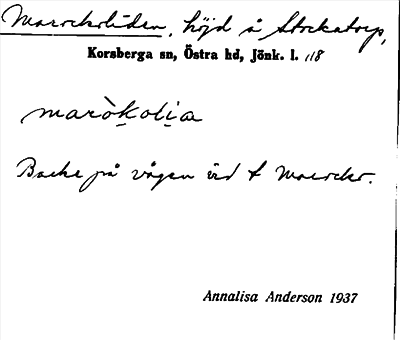 Marockoliden, höjd å Stockatorp,
Korsberga sn, Östra hd, Jönk. l. 118
maròkolia
Backe på vägen vid t Marocko.
Annalisa Anderson 1937